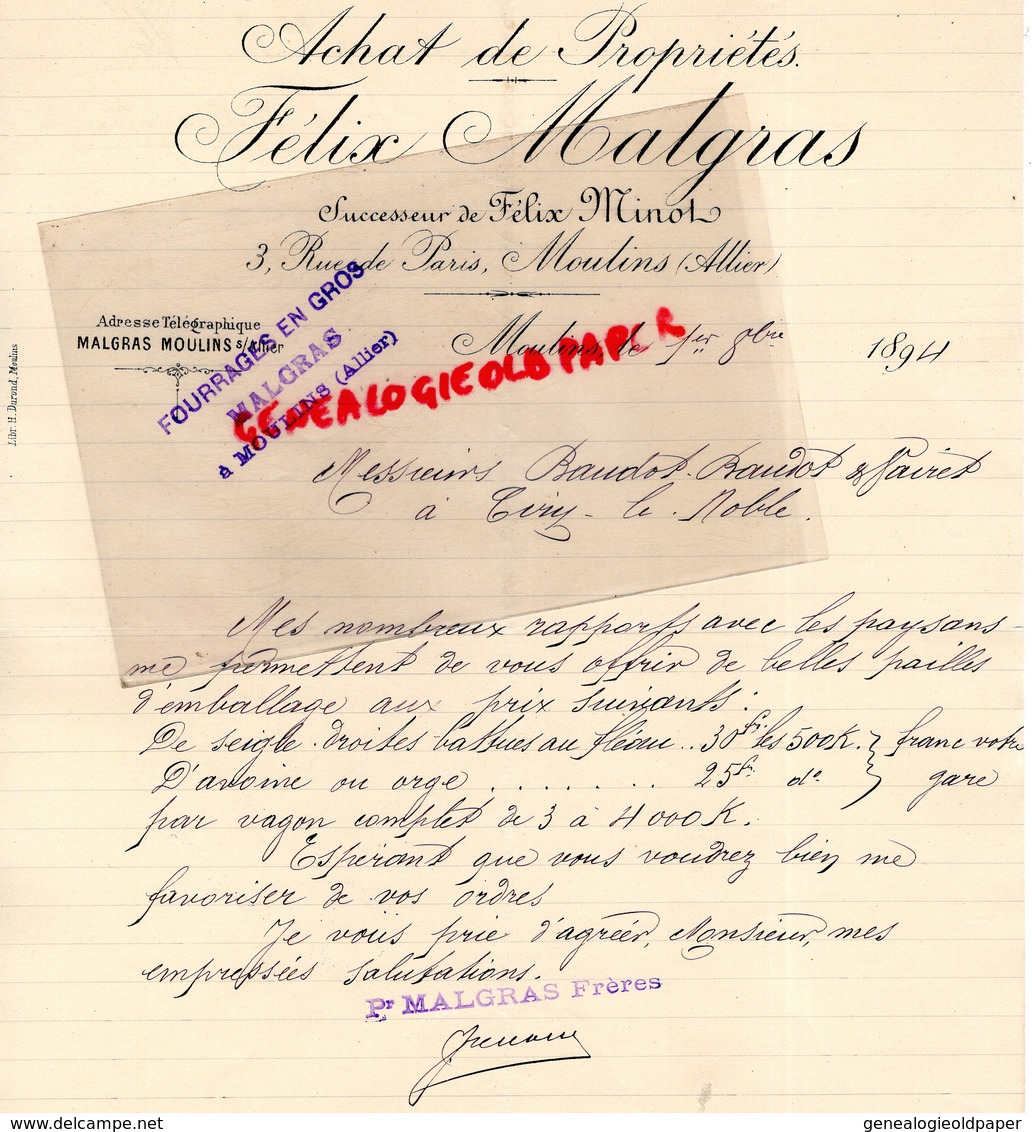 Achat de Propriétés.
Félix Malgras
Successeur de Félix Minot
3, Rue de Paris, Moulins (Allier)
Adresse Télégraphique
MALGRAS MOULINS s/Allier
FOURRAGES EN GROS
MALGRAS
à MOULINS (Allier)
GENEALOGIE OLD PAPER
Libr. H. Durond, Moulins
Moulins, le 1er 8bre 1894
Messieurs Baudot-Baudot & Pairet
à Ciry-le-Noble.
Mes nombreux rapports avec les paysans
me permettent de vous offrir de belles pailles
d'emballage aux prix suivants:
De seigle droites battues au fléau .. 30fr. les 500K. } franc votre
D'avoine ou orge ......... 25fr. do } gare
par vagon complet de 3 à 4000K.
Espérant que vous voudrez bien me
favoriser de vos ordres
Je voüs prie d'agréér, Monsieur, mes
empressées salutations.
Pr MALGRAS Frères
delcampe.net
genealogieoldpaper